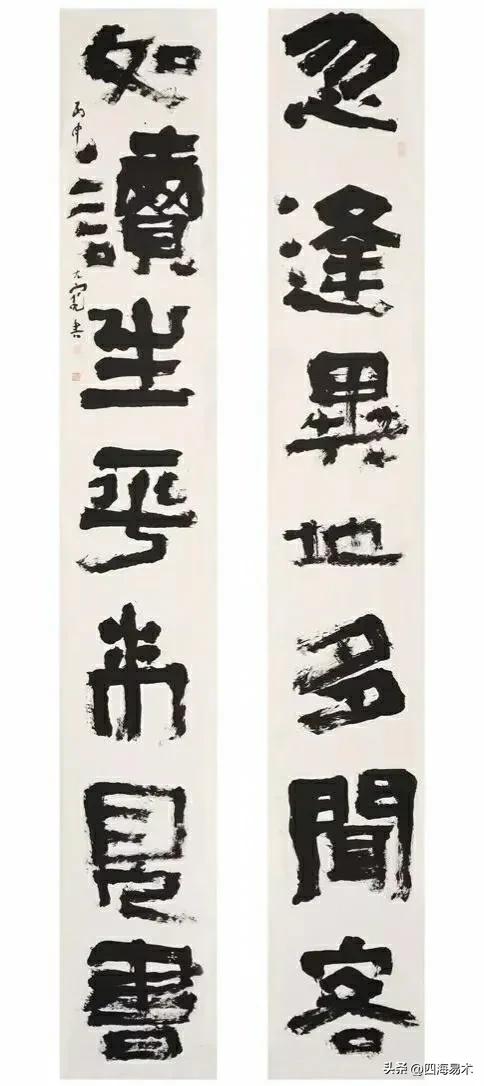 忽逢異地多聞客
如讀生平未見書
丙申
書
头条 @四海易木